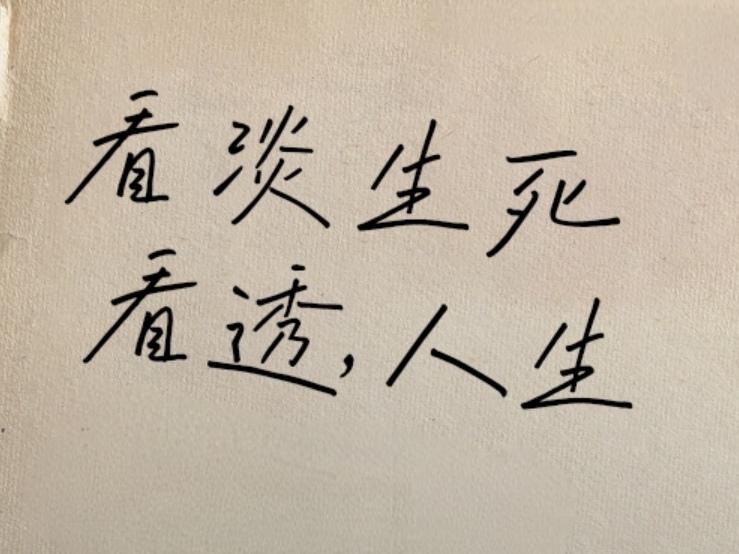 看淡生死
看透,人生